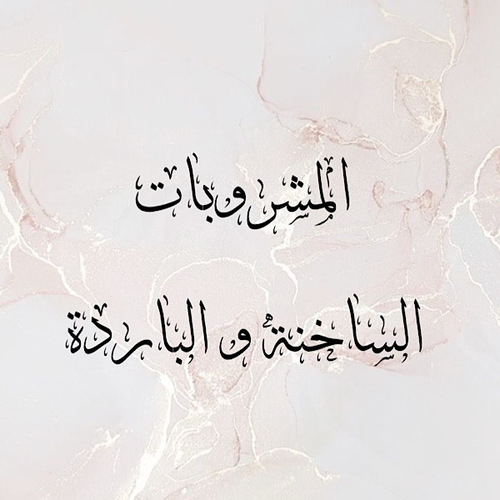 المشروبات
الساخنة و الباردة